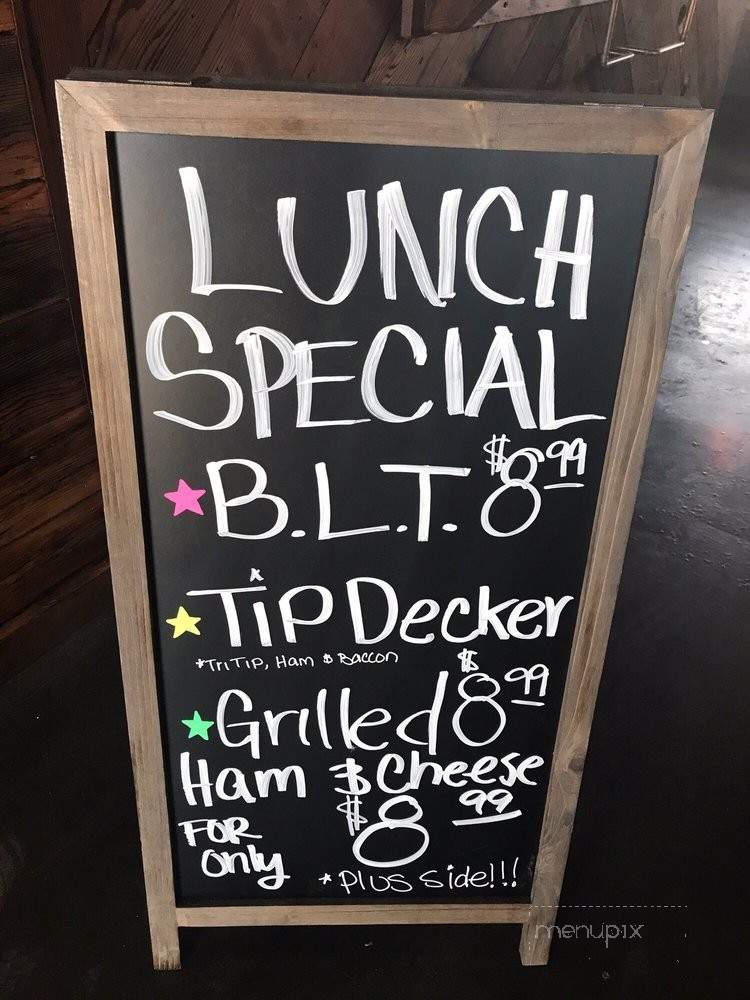 LUNCH
SPECIAL
B.L.T. $8.99
TiP Decker
*TriTiP, Ham & Baccon
$8.99
Grilled
Ham & Cheese
FOR only $8.99
*Plus side!!!
menupix